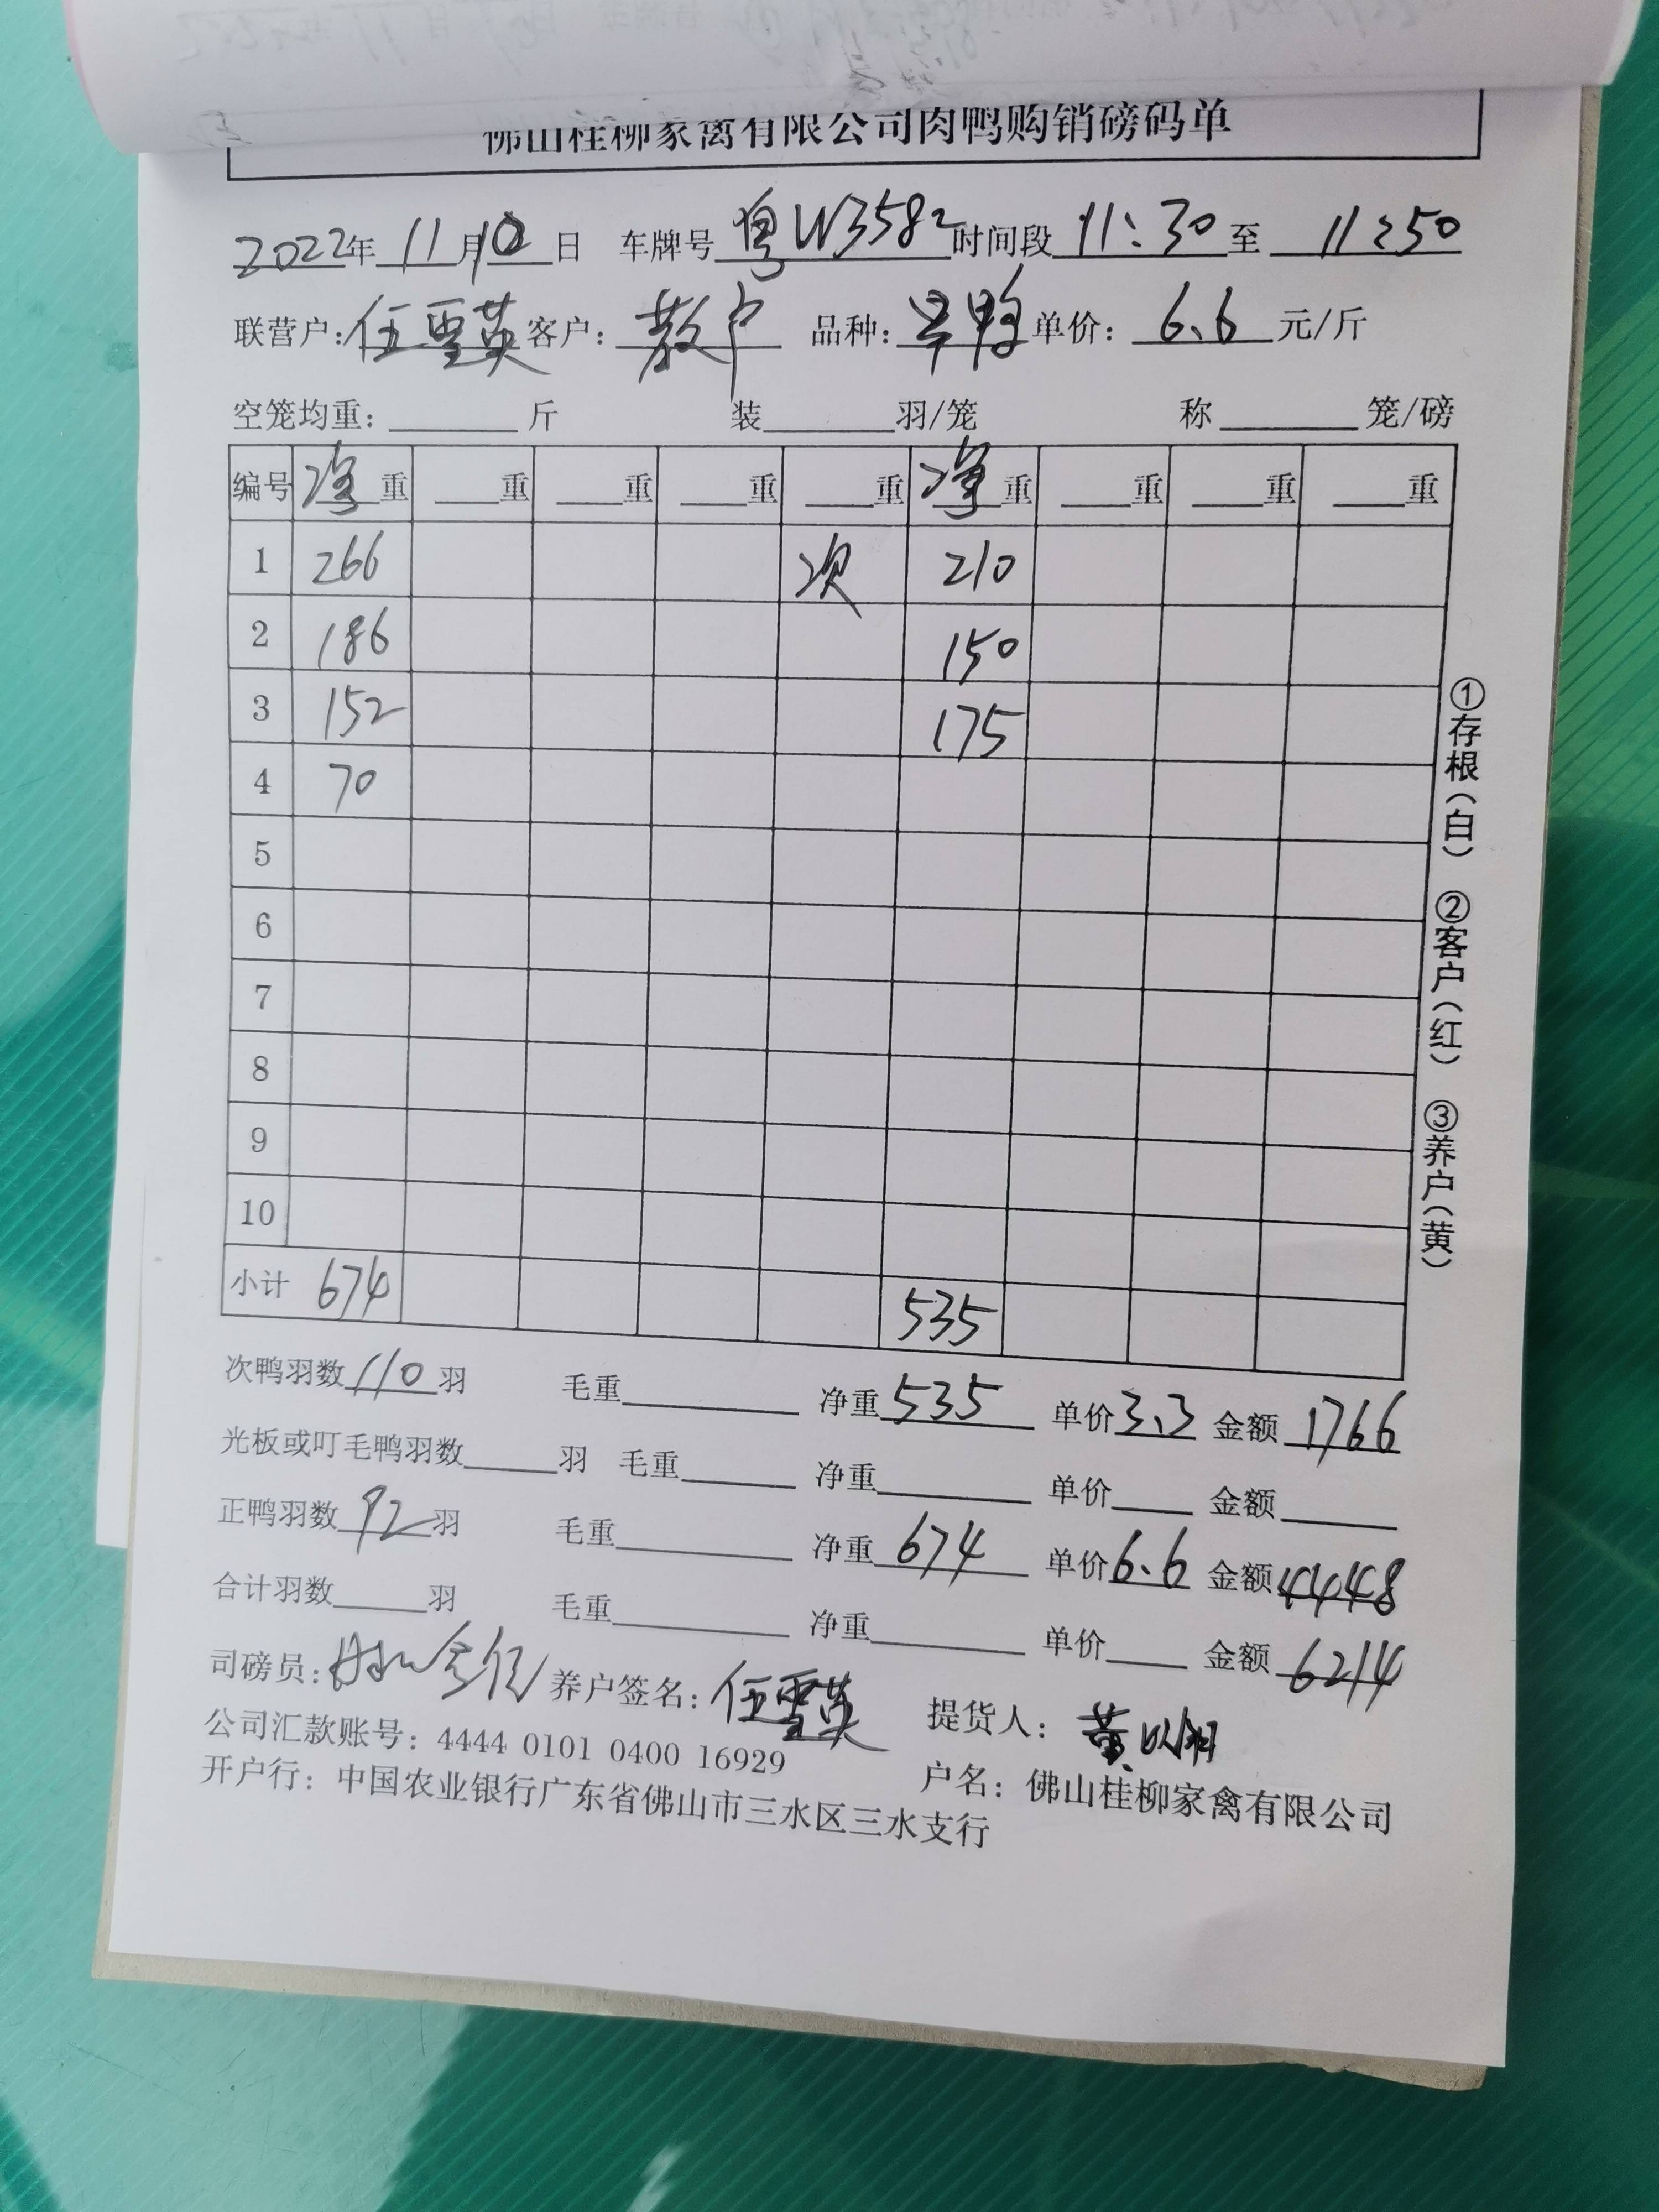 佛山桂柳家禽有限公司肉鸭购销磅码单
2022年 11月10日 车牌号 粤W3582 时间段 11:30 至 11:50
联营户: 伍雪英 客户: 散户 品种: 旱鸭 单价: 6.6 元/斤
空笼均重: 斤 装 羽/笼 称 笼/磅
编号 净重 重 重 重 重 净重 重 重 重
1 266 次 210
2 186 150
3 152 175
4 70
5
6
7
8
9
10
小计 674 535
次鸭羽数 110 羽 毛重 净重 535 单价 3.3 金额 1766
光板或叮毛鸭羽数 羽 毛重 净重 单价 金额
正鸭羽数 92 羽 毛重 净重 674 单价 6.6 金额 4448
合计羽数 羽 毛重 净重 单价 金额 6214
司磅员: 养户签名: 伍雪英 提货人: 黄
公司汇款账号: 4444 0101 0400 16929 户名: 佛山桂柳家禽有限公司
开户行: 中国农业银行广东省佛山市三水区三水支行
①存根(白) ②客户(红) ③养户(黄)